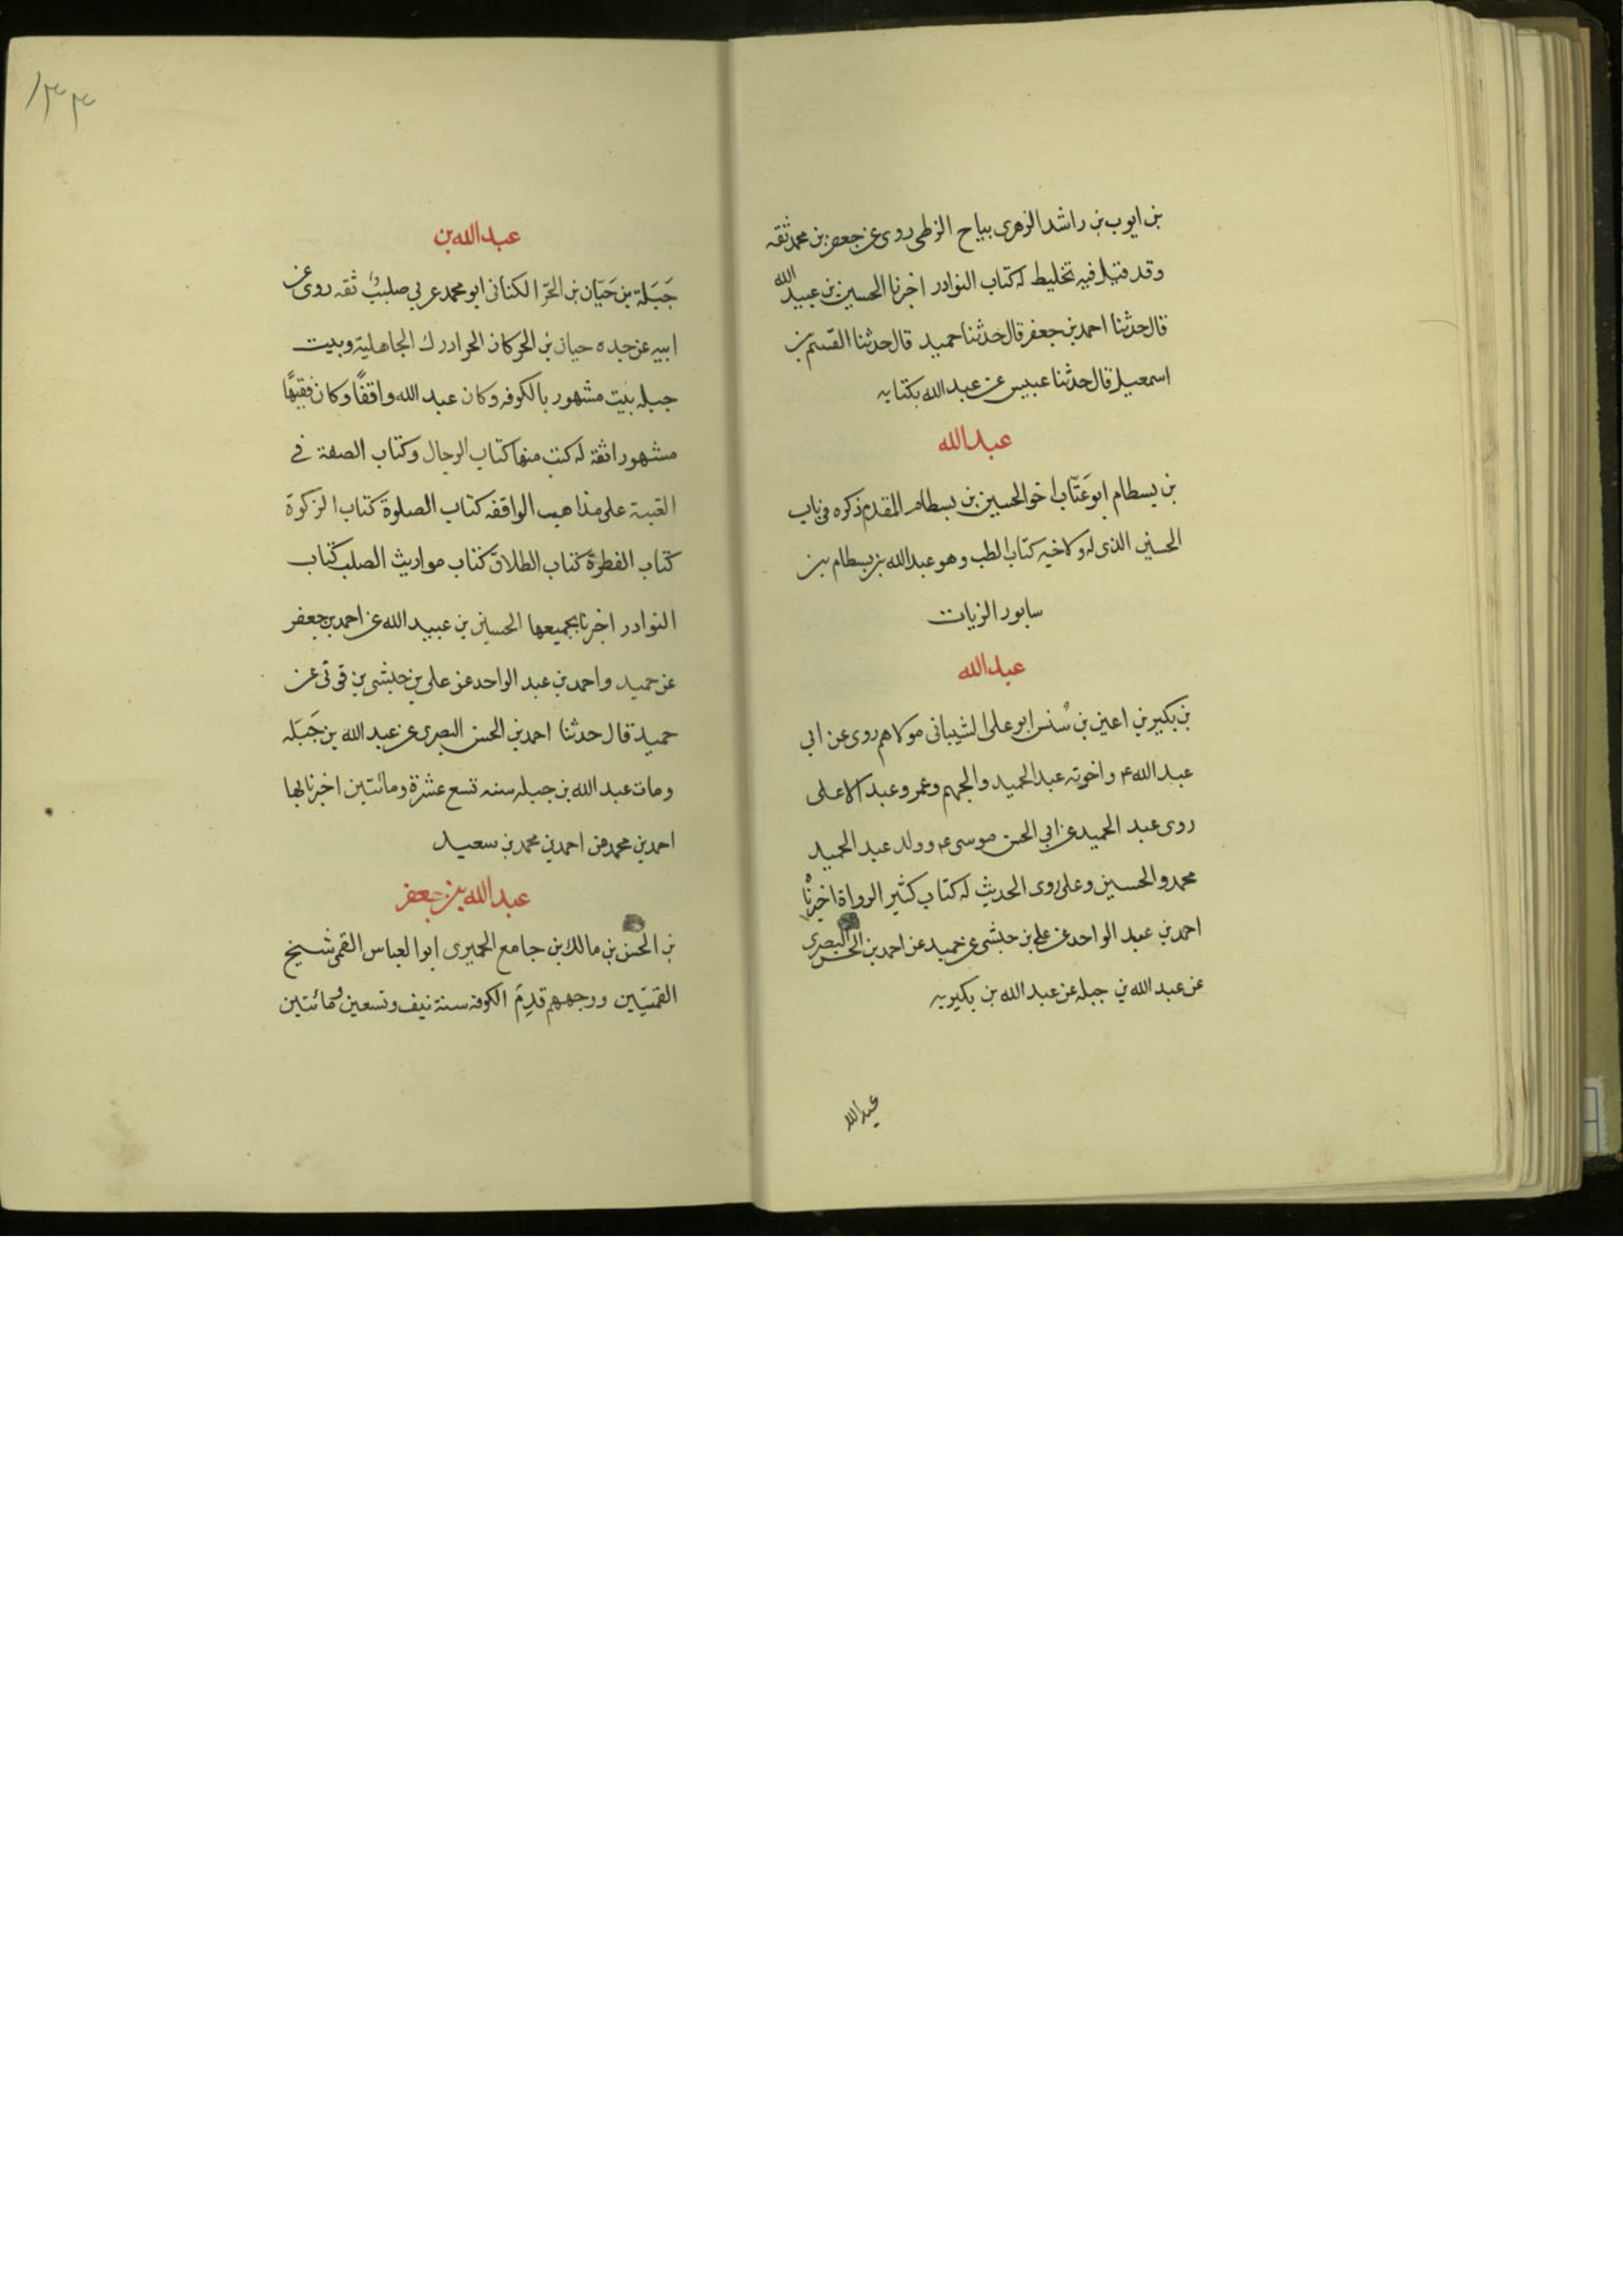 بن ايوب بن راشد الزهرى بياح الزطى روى عن جعفر بن محمد ثقه
وقد قيل فيه تخليط له كتاب النوادر اخبرنا الحسين بن عبيد الله
قال حدثنا احمد بن جعفر قال حدثنا حميد قال حدثنا القسم بن
اسمعيل قال حدثنا عبيس عن عبد الله بكتابه
عبد الله
بن بسطام ابو عَتّاب اخو الحسين بن بسطام المقدم ذكره فى باب
الحسين الذى له ولاخيه كتاب الطب وهو عبد الله بن بسطام بن
سابور الزيات
عبد الله
بن بكير بن اعين بن سُنسن ابو على الشيبانى مولاهم روى عن ابى
عبد الله ع واخوته عبد الحميد والجهم وعمر وعبد الاعلى
روى عبد الحميد عن ابى الحسن موسى ع وولد عبد الحميد
محمد والحسين وعلى روى الحديث له كتاب كثير الرواة اخبرنا
احمد بن عبد الواحد عن على بن حبشى عن حميد عن احمد بن الحسن البصرى
عن عبد الله بن جبله عن عبد الله بن بكير به
عبد الله
١٣٣
عبد الله بن
جَبَلة بن حَيّان بن الحرّ الكنانى ابو محمد عربى صليب ثقه روى عن
ابيه عن جده حيان بن الحر كان الحر ادرك الجاهلية وبيت
جبله بيت مشهور بالكوفه وكان عبد الله واقفًا وكان فقيهًا
مشهورا ثقة له كتب منها كتاب الرجال وكتاب الصفة فى
الغيبة على مذاهب الواقفه كتاب الصلوة كتاب الزكوة
كتاب الفطرة كتاب الطلاق كتاب مواريث الصلب كتاب
النوادر اخبرنا بجميعها الحسين بن عبيد الله عن احمد بن جعفر
عن حميد واحمد بن عبد الواحد عن على بن حبشى بن قونى عن
حميد قال حدثنا احمد بن الحسن البصرى عن عبد الله بن جَبَله
ومات عبد الله بن جبله سنه تسع عشرة ومائتين اخبرنا بها
احمد بن محمد عن احمد بن محمد بن سعيد
عبد الله بن جعفر
بن الحسن بن مالك بن جامع الحميرى ابو العباس القمى شيخ
القميّين ووجههم قدِمَ الكوفه سنة نيف وتسعين ومائتين